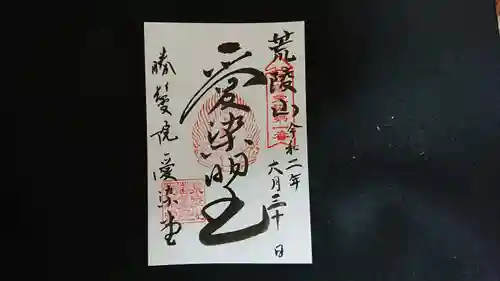 荒陵山
令和二年
六月三十日
愛染明王
勝鬘院 愛染堂